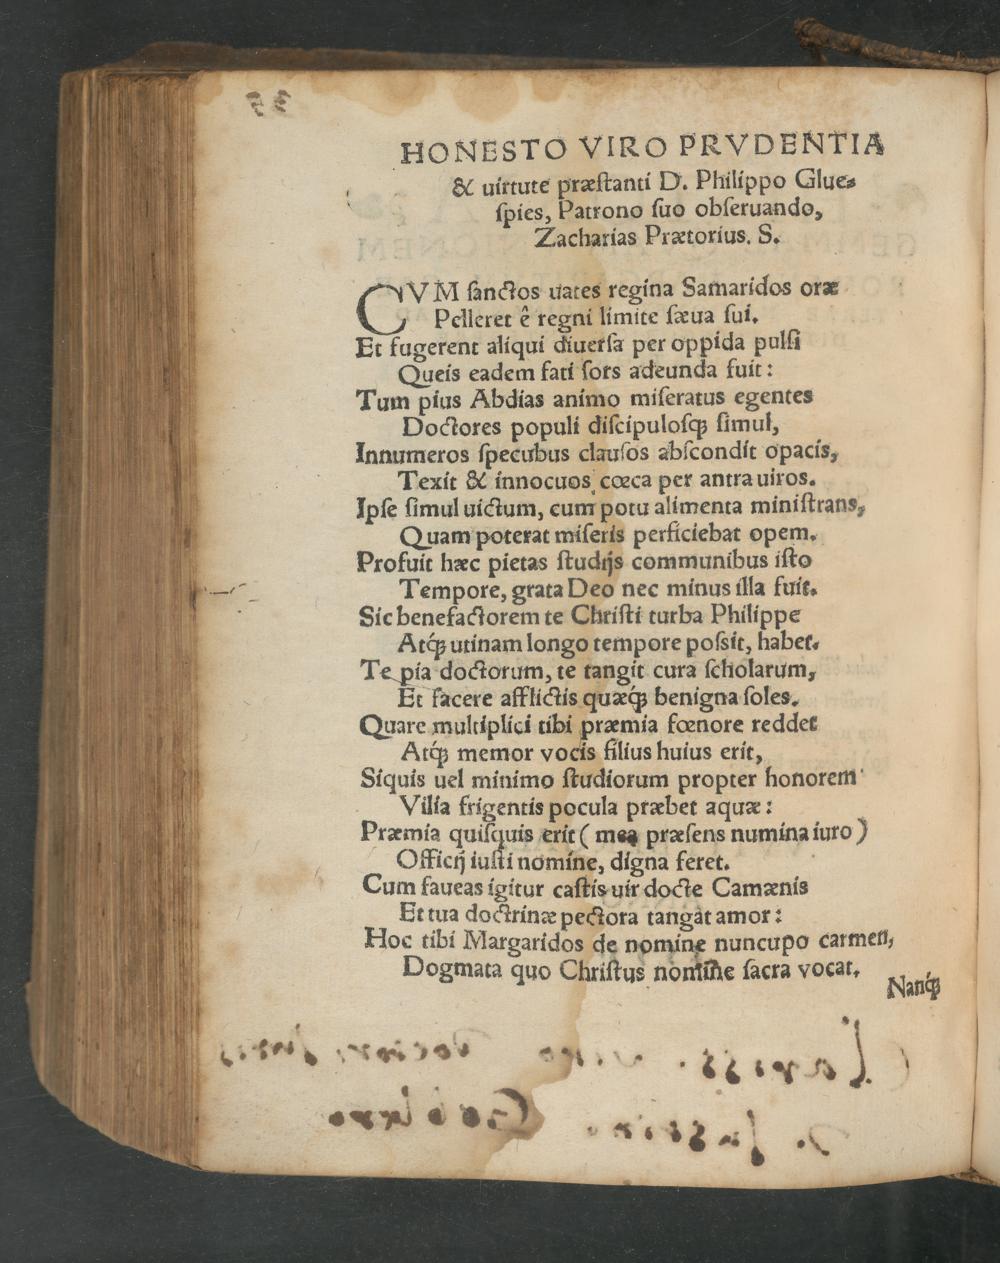 HONESTO VIRO PRVDENTIA
& uirtute præſtanti D. Philippo Glue⸗
ſpies, Patrono ſuo obſeruando,
Zacharias Prætorius. S.
CVM ſanctos uates regina Samaridos oræ
Pelleret ê regni limite ſæua ſui.
Et fugerent aliqui diuerſa per oppida pulſi
Queis eadem fati ſors adeunda fuit:
Tum pius Abdias animo miſeratus egentes
Doctores populi diſcipuloſqꝫ ſimul,
Innumeros ſpecubus clauſos abſcondit opacis,
Texit & innocuos cœca per antra uiros.
Ipſe ſimul uictum, cum potu alimenta miniſtrans,
Quam poterat miſeris perficiebat opem.
Profuit hæc pietas ſtudijs communibus iſto
Tempore, grata Deo nec minus illa fuit.
Sic benefactorem te Chriſti turba Philippe
Atq́ꝫ utinam longo tempore poſsit, habet.
Te pia doctorum, te tangit cura ſcholarum,
Et facere afflictis quæq́ꝫ benigna ſoles.
Quare multiplici tibi præmia fœnore reddet
Atq́ꝫ memor vocis filius huius erit,
Siquis uel minimo ſtudiorum propter honorem
Vilia frigentis pocula præbet aquæ:
Præmia quiſquis erit (mea præſens numina iuro)
Officij iuſti nomine, digna feret.
Cum faueas igitur caſtis uir docte Camænis
Et tua doctrinæ pectora tangat amor:
Hoc tibi Margaridos de nomine nuncupo carmen,
Dogmata quo Chriſtus nomine ſacra vocat.
Nanq́ꝫ